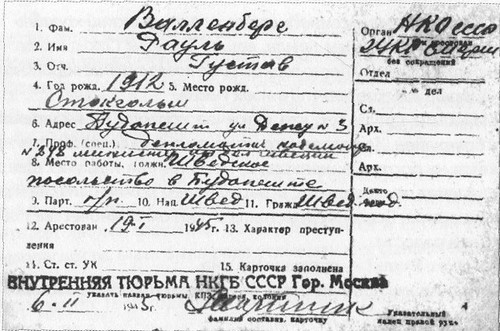 1. Фам. Валленберг
2. Имя Рауль
3. Отч. Густав
4. Год рожд. 1912 5. Место рожд.
Стокгольм
6. Адрес Будапешт ул
7. Проф. (спец.)
8. Место работы, должн. Шведское
посольство в Будапеште
9. Парт. б/п. 10. Нац. Швед 11. Гражд. Швед
12. Арестован 19-I 1945 г. 13. Характер преступ-
ления
14. Ст. ст. УК 15. Карточка заполнена
ВНУТРЕННЯЯ ТЮРЬМА НКГБ СССР Гор. Москва
указать назван. тюрьмы, КПЗ, колонии
6-II г.
фамилия составив. карточку
Орган
без сокращений
Отдел
дел
Сл.
Арх.
Арк.
Указательный
палец правой руки